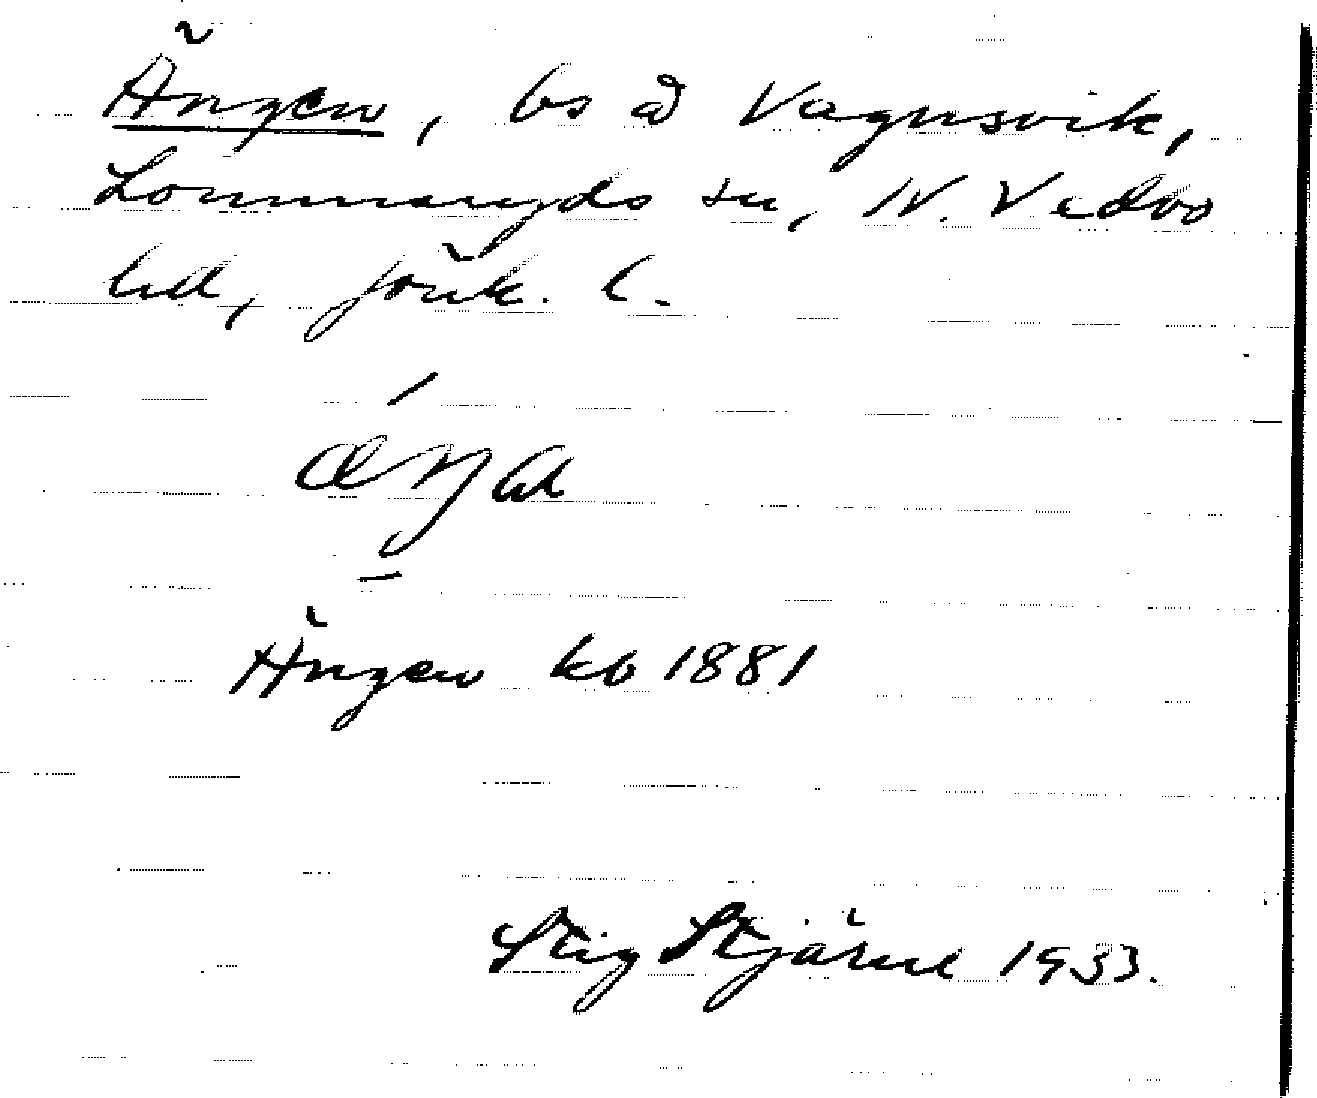 Ängen, bs å Vagnsvik,
Lommaryds sn, N. Vedbo
hd, Jönk. l.
Ängen kb 1881
Stig Stjärne 1933.